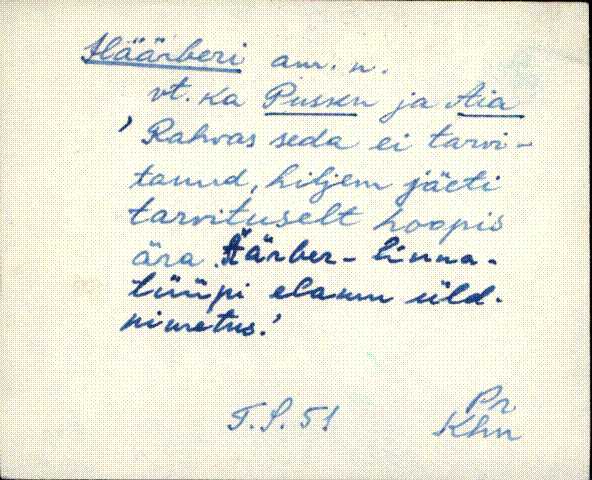 Häärberi am. n.
vt. ka Pussu ja Aia
'Rahvas seda ei tarvi-
tanud, hiljem jäeti
tarvituselt hoopis
ära. Häärber - linna-
tüüpi elamu üld-
nimetus.'
T.S. 51 Pr
Khn